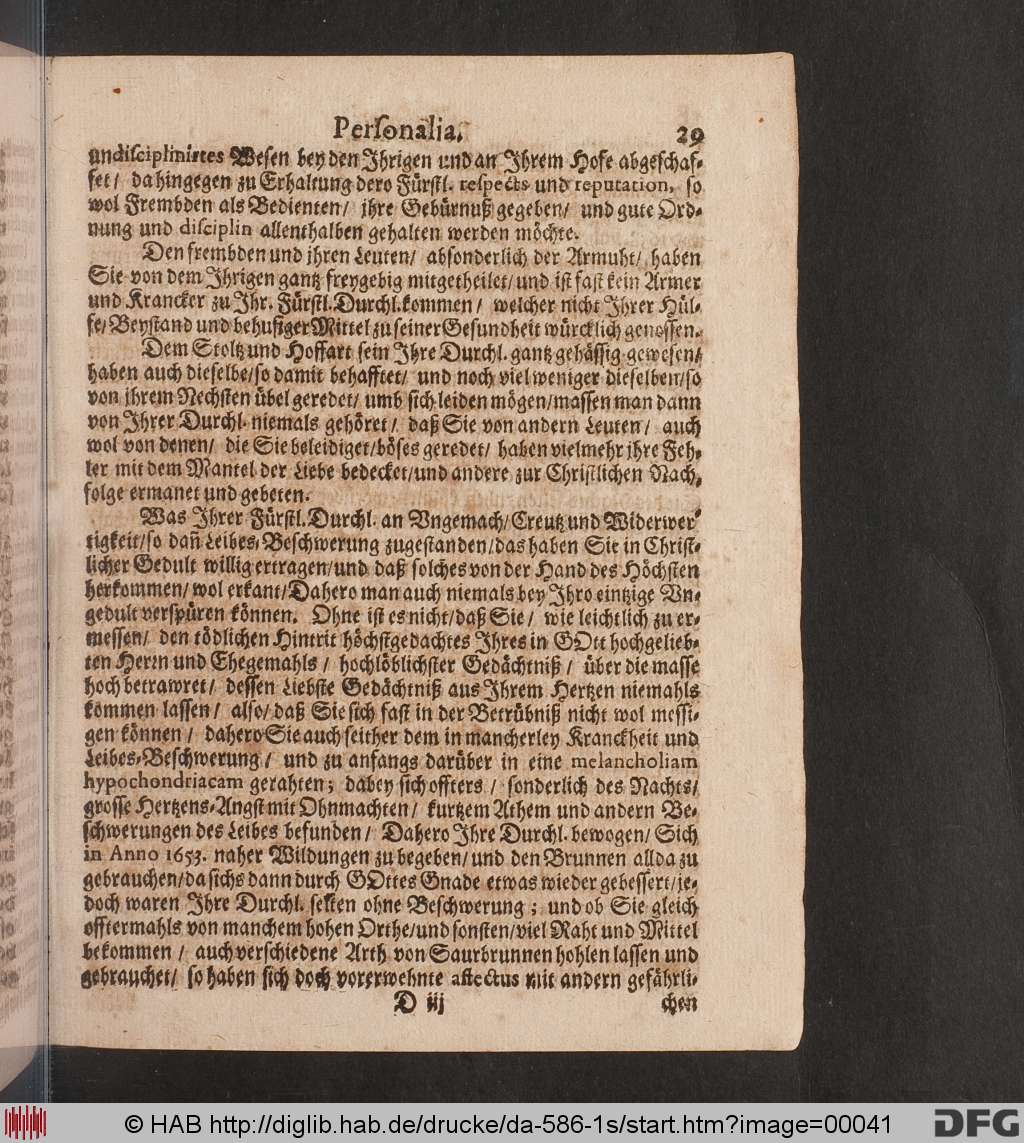 Personalia. 29
undisciplinirtes Wesen bey den Ihrigen und an Ihrem Hofe abgeschaf-
fet/ dahingegen zu Erhaltung dero Fürstl. respects und reputation, so
wol Frembden als Bedienten/ jhre Gebürnuß gegeben/ und gute Ord-
nung und disciplin allenthalben gehalten werden möchte.
Den frembden und jhren Leuten/ absonderlich der Armuht/ haben
Sie von dem Ihrigen gantz freygebig mitgetheilet/ und ist fast kein Armer
und Krancker zu Ihr. Fürstl. Durchl. kommen/ welcher nicht Ihrer Hül-
fe/ Beystand und behufiger Mittel zu seiner Gesundheit würcklich genossen.
Dem Stoltz und Hoffart sein Ihre Durchl. gantz gehässig gewesen/
haben auch dieselbe/ so damit behafftet/ und noch viel weniger dieselben/ so
von jhrem Nechsten übel geredet/ umb sich leiden mögen/ massen man dann
von Ihrer Durchl. niemals gehöret/ daß Sie von andern Leuten/ auch
wol von denen/ die Sie beleidiget/ böses geredet/ haben vielmehr jhre Feh-
ler mit dem Mantel der Liebe bedecket/ und andere zur Christlichen Nach-
folge ermanet und gebeten.
Was Ihrer Fürstl. Durchl. an Vngemach/ Creutz und Widerwer-
tigkeit/ so dañ Leibes-Beschwerung zugestanden/ das haben Sie in Christ-
licher Gedult willig ertragen/ und daß solches von der Hand des Höchsten
herkommen/ wol erkant/ Dahero man auch niemals bey Ihro eintzige Vn-
gedult verspüren können. Ohne ist es nicht/ daß Sie/ wie leichtlich zu er-
messen/ den tödlichen Hintrit höchstgedachtes Ihres in GOtt hochgelieb-
ten Herrn und Ehegemahls/ hochlöblichster Gedächtniß/ über die masse
hoch betrawret/ dessen Liebste Gedächtniß aus Ihrem Hertzen niemahls
kommen lassen/ also/ daß Sie sich fast in der Betrübniß nicht wol messi-
gen können/ dahero Sie auch seither dem in mancherley Kranckheit und
Leibes-Beschwerung/ und zu anfangs darüber in eine melancholiam
hypochondriacam gerahten; dabey sich offters/ sonderlich des Nachts/
grosse Hertzens-Angst mit Ohnmachten/ kurtzem Athem und andern Be-
schwerungen des Leibes befunden/ Dahero Ihre Durchl. bewogen/ Sich
in Anno 1653. naher Wildungen zu begeben/ und den Brunnen allda zu
gebrauchen/ da sichs dann durch GOttes Gnade etwas wieder gebessert/ je-
doch waren Ihre Durchl. selten ohne Beschwerung; und ob Sie gleich
offtermahls von manchem hohen Orthe/ und sonsten/ viel Raht und Mittel
bekommen/ auch verschiedene Arth von Saurbrunnen hohlen lassen und
gebrauchet/ so haben sich doch vorerwehnte affectus mit andern gefährli-
D iij chen
© HAB http://diglib.hab.de/drucke/da-586-1s/start.htm?image=00041 DFG